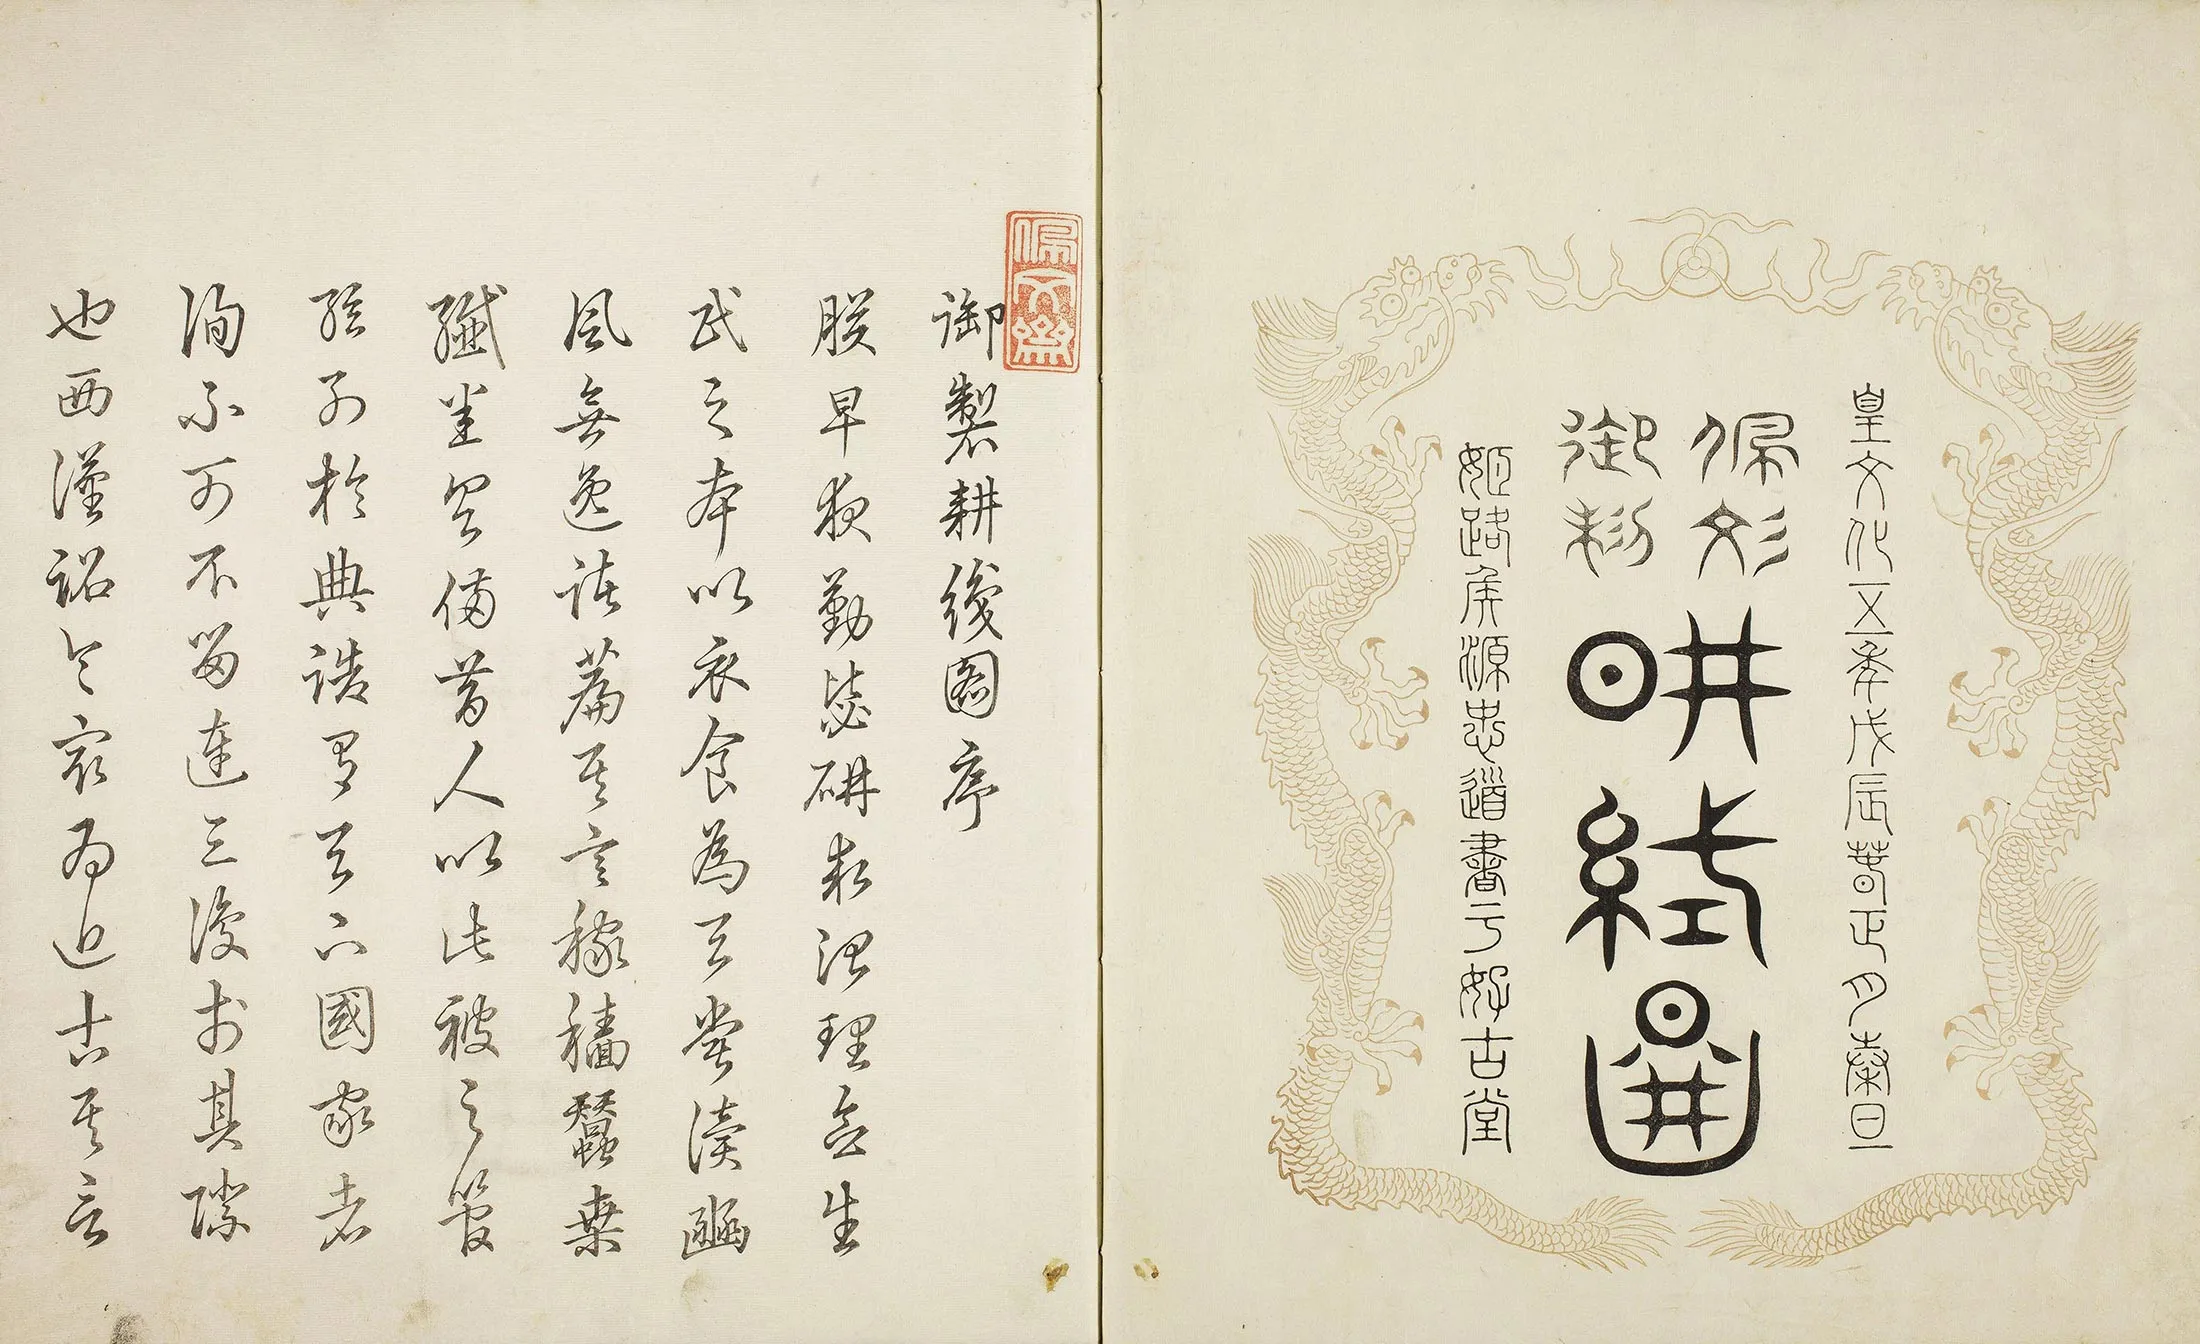 皇文化五年戊辰春正月旦
佩文
御
耕織圖
姬路侯源忠道書于好古堂
佩文齋
御製耕織圖序
朕早夜勤毖研求治理念生
民之本以衣食為天嘗讀豳
風無逸諸篇其言稼穡蠶桑
纖悉具備昔人以此被之管
弦列於典誥有天下國家者
洵不可不留連三復於其際
也西漢詔令最為近古其言